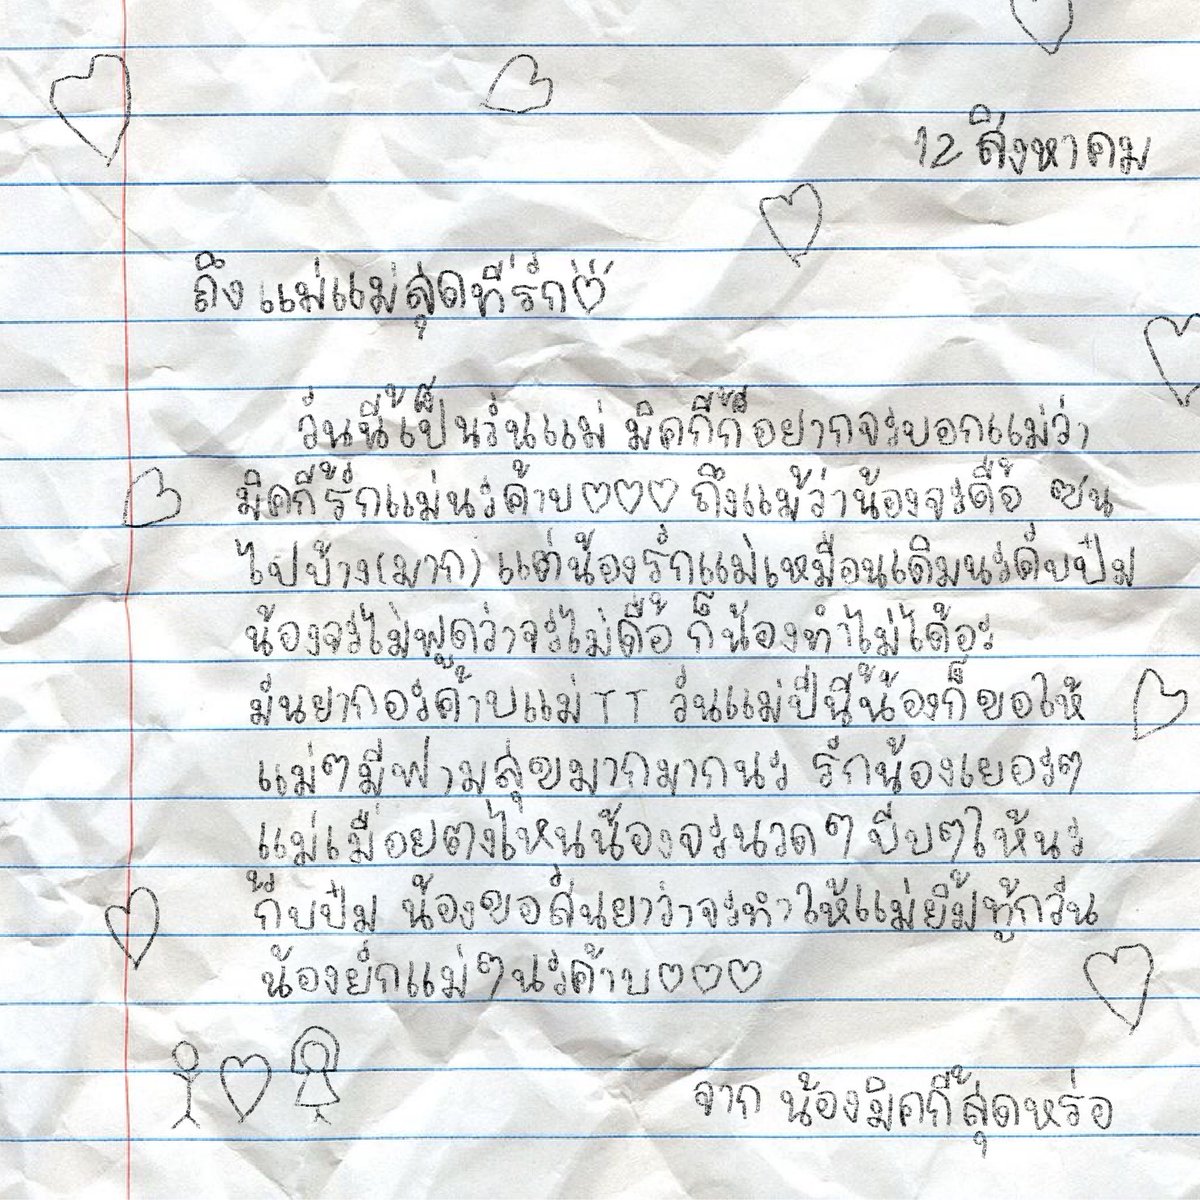 12 สิงหาคม
ถึง แม่แม่สุดที่รัก♡
วันนี้เป็นวันแม่ มิคกี้ก็อยากจะบอกแม่ว่า
มิคกี้รักแม่นะค้าบ♡♡♡ ถึงแม้ว่าน้องจะดื้อ ซน
ไปบ้าง(มาก) แต่น้องรักแม่เหมือนเดิมนะคับป๋ม
น้องจะไม่พูดว่าจะไม่ดื้อ ก็น้องทำไม่ได้อะ
มันยากอะค้าบแม่TT วันแม่ปีนี้น้องก็ขอให้
แม่ๆมีฟามสุขมากมากนะ รักน้องเยอะๆ
แม่เมื่อยตงไหนน้องจะนวดๆ บีบๆให้นะ
ก๊ับป๋ม น้องขอสันยาว่าจะทำให้แม่ยิ้มทู้กวัน
น้องยักแม่ๆนะค้าบ♡♡♡
จาก น้องมิคกี้สุดหร่อ